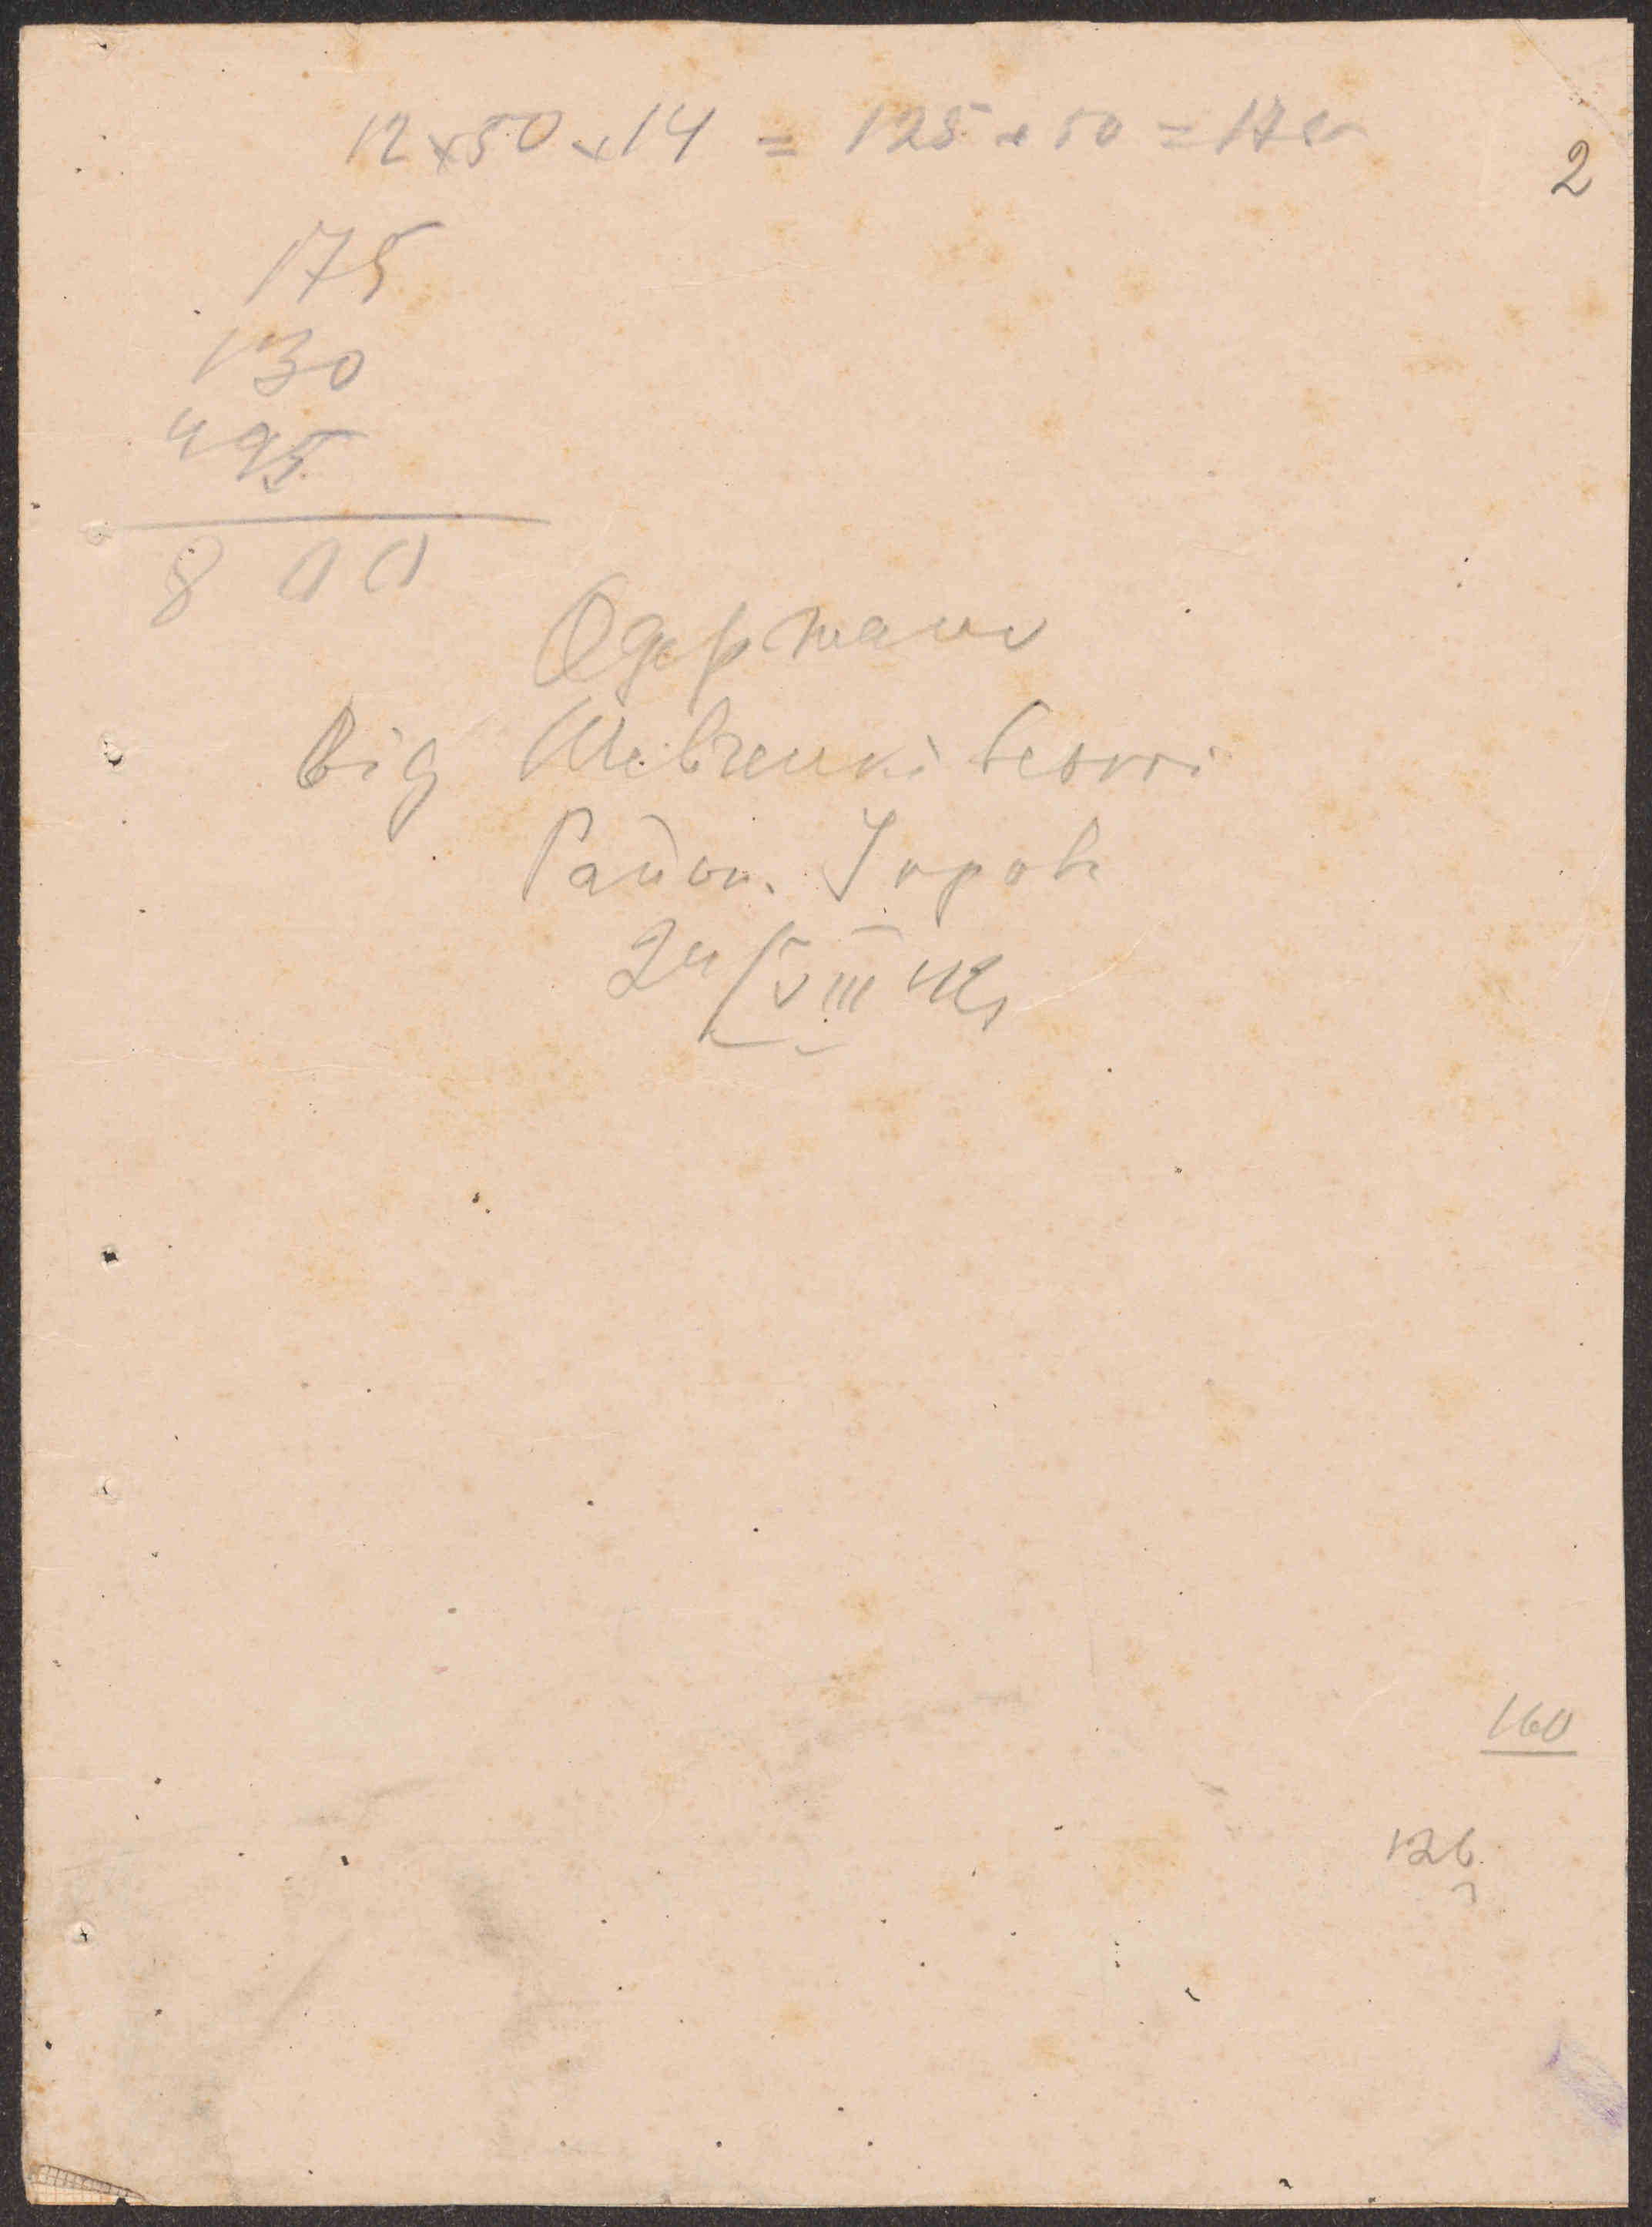 12 x 50 x 14 = 125 + 50 = 175
2
175
130
495
800
Одержано
від Шевченківської
Район. Управ
24/VIII 42
160
126